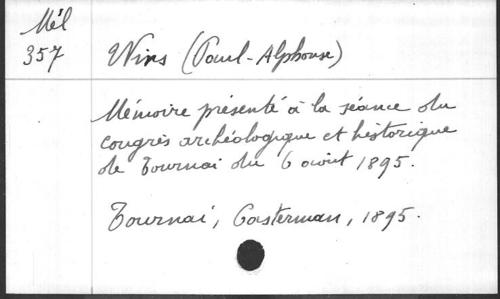 Mél
357
Wins (Paul-Alphonse)
Mémoire présenté à la séance du
congrès archéologique et historique
de Tournai du 6 août 1895.
Tournai, Casterman, 1895.